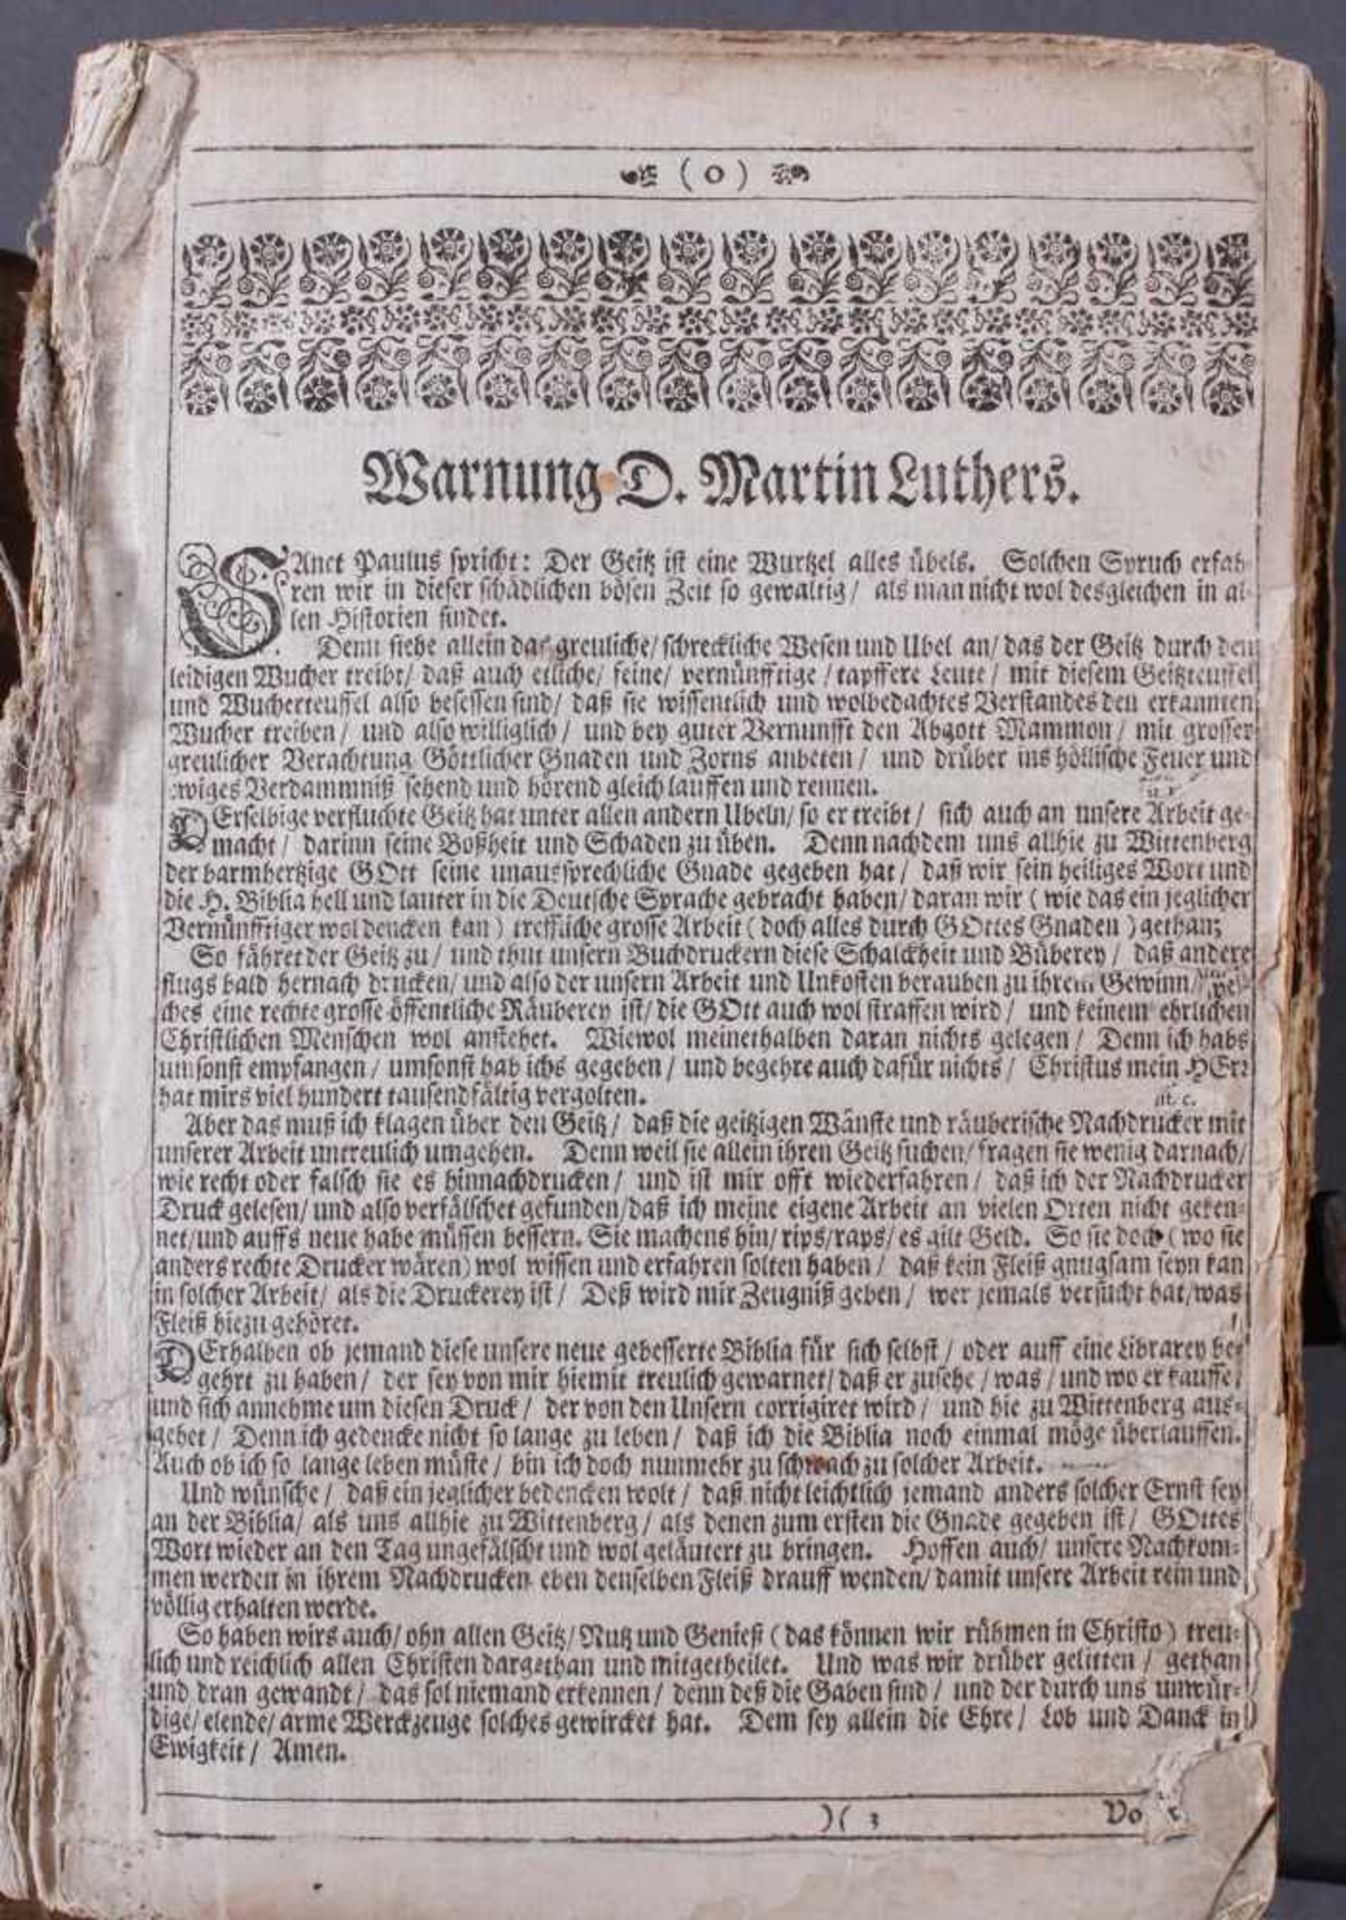 ( 0 )
Warnung D. Martin Luthers.
SAnct Paulus spricht: Der Geitz ist eine Wurtzel alles übels. Solchen Spruch erfah-
ren wir in dieser schädlichen bösen Zeit so gewaltig / als man nicht wol desgleichen in al-
len Historien findet.
Denn siehe allein das greuliche / schreckliche Wesen und Ubel an / das der Geitz durch den
leidigen Wucher treibt / daß auch etliche / feine / vernünfftige / tapffere Leute / mit diesem Geitzteuffel
und Wucherteuffel also besessen sind / daß sie wissentlich und wolbedachtes Verstandes den erkannten
Wucher treiben / und also williglich / und bey guter Vernunfft den Abgott Mammon / mit grosser
greulicher Verachtung Göttlicher Gnaden und Zorns anbeten / und drüber ins höllische Feuer und
ewiges Verdammniß sehend und hörend gleich lauffen und rennen.
DErselbige verfluchte Geitz hat unter allen andern Ubeln / so er treibt / sich auch an unsere Arbeit ge-
macht / darinn seine Boßheit und Schaden zu üben. Denn nachdem uns allhie zu Wittenberg
der barmhertzige GOtt seine unaussprechliche Gnade gegeben hat / daß wir sein heiliges Wort und
die H. Biblia hell und lauter in die Deutsche Sprache gebracht haben / daran wir ( wie das ein jeglicher
Vernünfftiger wol dencken kan ) treffliche grosse Arbeit ( doch alles durch GOttes Gnaden ) gethan;
So fähret der Geitz zu / und thut unsern Buchdruckern diese Schalckheit und Büberey / daß andere
flugs bald hernach drucken / und also der unsern Arbeit und Unkosten berauben zu ihrem Gewinn / wel-
ches eine rechte grosse öffentliche Räuberey ist / die GOtt auch wol straffen wird / und keinem ehrlichen
Christlichen Menschen wol anstehet. Wiewol meinethalben daran nichts gelegen / Denn ich habs
umsonst empfangen / umsonst hab ichs gegeben / und begehre auch dafür nichts / Christus mein HErr
hat mirs viel hundert tausendfältig vergolten.
Aber das muß ich klagen über den Geitz / daß die geitzigen Wänste und räuberische Nachdrucker mit
unserer Arbeit untreulich umgehen. Denn weil sie allein ihren Geitz suchen / fragen sie wenig darnach /
wie recht oder falsch sie es hinnachdrucken / und ist mir offt wiederfahren / daß ich der Nachdrucker
Druck gelesen / und also verfälschet gefunden / daß ich meine eigene Arbeit an vielen Orten nicht geken-
net / und auffs neue habe müssen bessern. Sie machens hin / rips / raps / es gilt Geld. So sie doch ( wo sie
anders rechte Drucker wären ) wol wissen und erfahren solten haben / daß kein Fleiß gnugsam seyn kan
in solcher Arbeit / als die Druckerey ist / Deß wird mir Zeugniß geben / wer jemals versucht hat / was
Fleiß hiezu gehöret.
DErhalben ob jemand diese unsere neue gebesserte Biblia für sich selbst / oder auff eine Librarey be-
gehrt zu haben / der sey von mir hiemit treulich gewarnet / daß er zusehe / was / und wo er kauffe /
und sich annehme um diesen Druck / der von den Unsern corrigiret wird / und hie zu Wittenberg aus-
gehet / Denn ich gedencke nicht so lange zu leben / daß ich die Biblia noch einmal möge überlauffen.
Auch ob ich so lange leben müste / bin ich doch nunmehr zu schwach zu solcher Arbeit.
Und wünsche / daß ein jeglicher bedencken wolt / daß nicht leichtlich jemand anders solcher Ernst sey
an der Biblia / als uns allhie zu Wittenberg / als denen zum ersten die Gnade gegeben ist / GOttes
Wort wieder an den Tag ungefälscht und wol geläutert zu bringen. Hoffen auch / unsere Nachkom-
men werden in ihrem Nachdrucken eben denselben Fleiß drauff wenden / damit unsere Arbeit rein und
völlig erhalten werde.
So haben wirs auch / ohn allen Geitz / Nutz und Genieß ( das können wir rühmen in Christo ) treu-
lich und reichlich allen Christen dargethan und mitgetheilet. Und was wir drüber gelitten / gethan
und dran gewandt / das sol niemand erkennen / denn deß die Gaben sind / und der durch uns unwür-
dige / elende / arme Werckzeuge solches gewircket hat. Dem sey allein die Ehre / Lob und Danck in
Ewigkeit / Amen.
)( 3